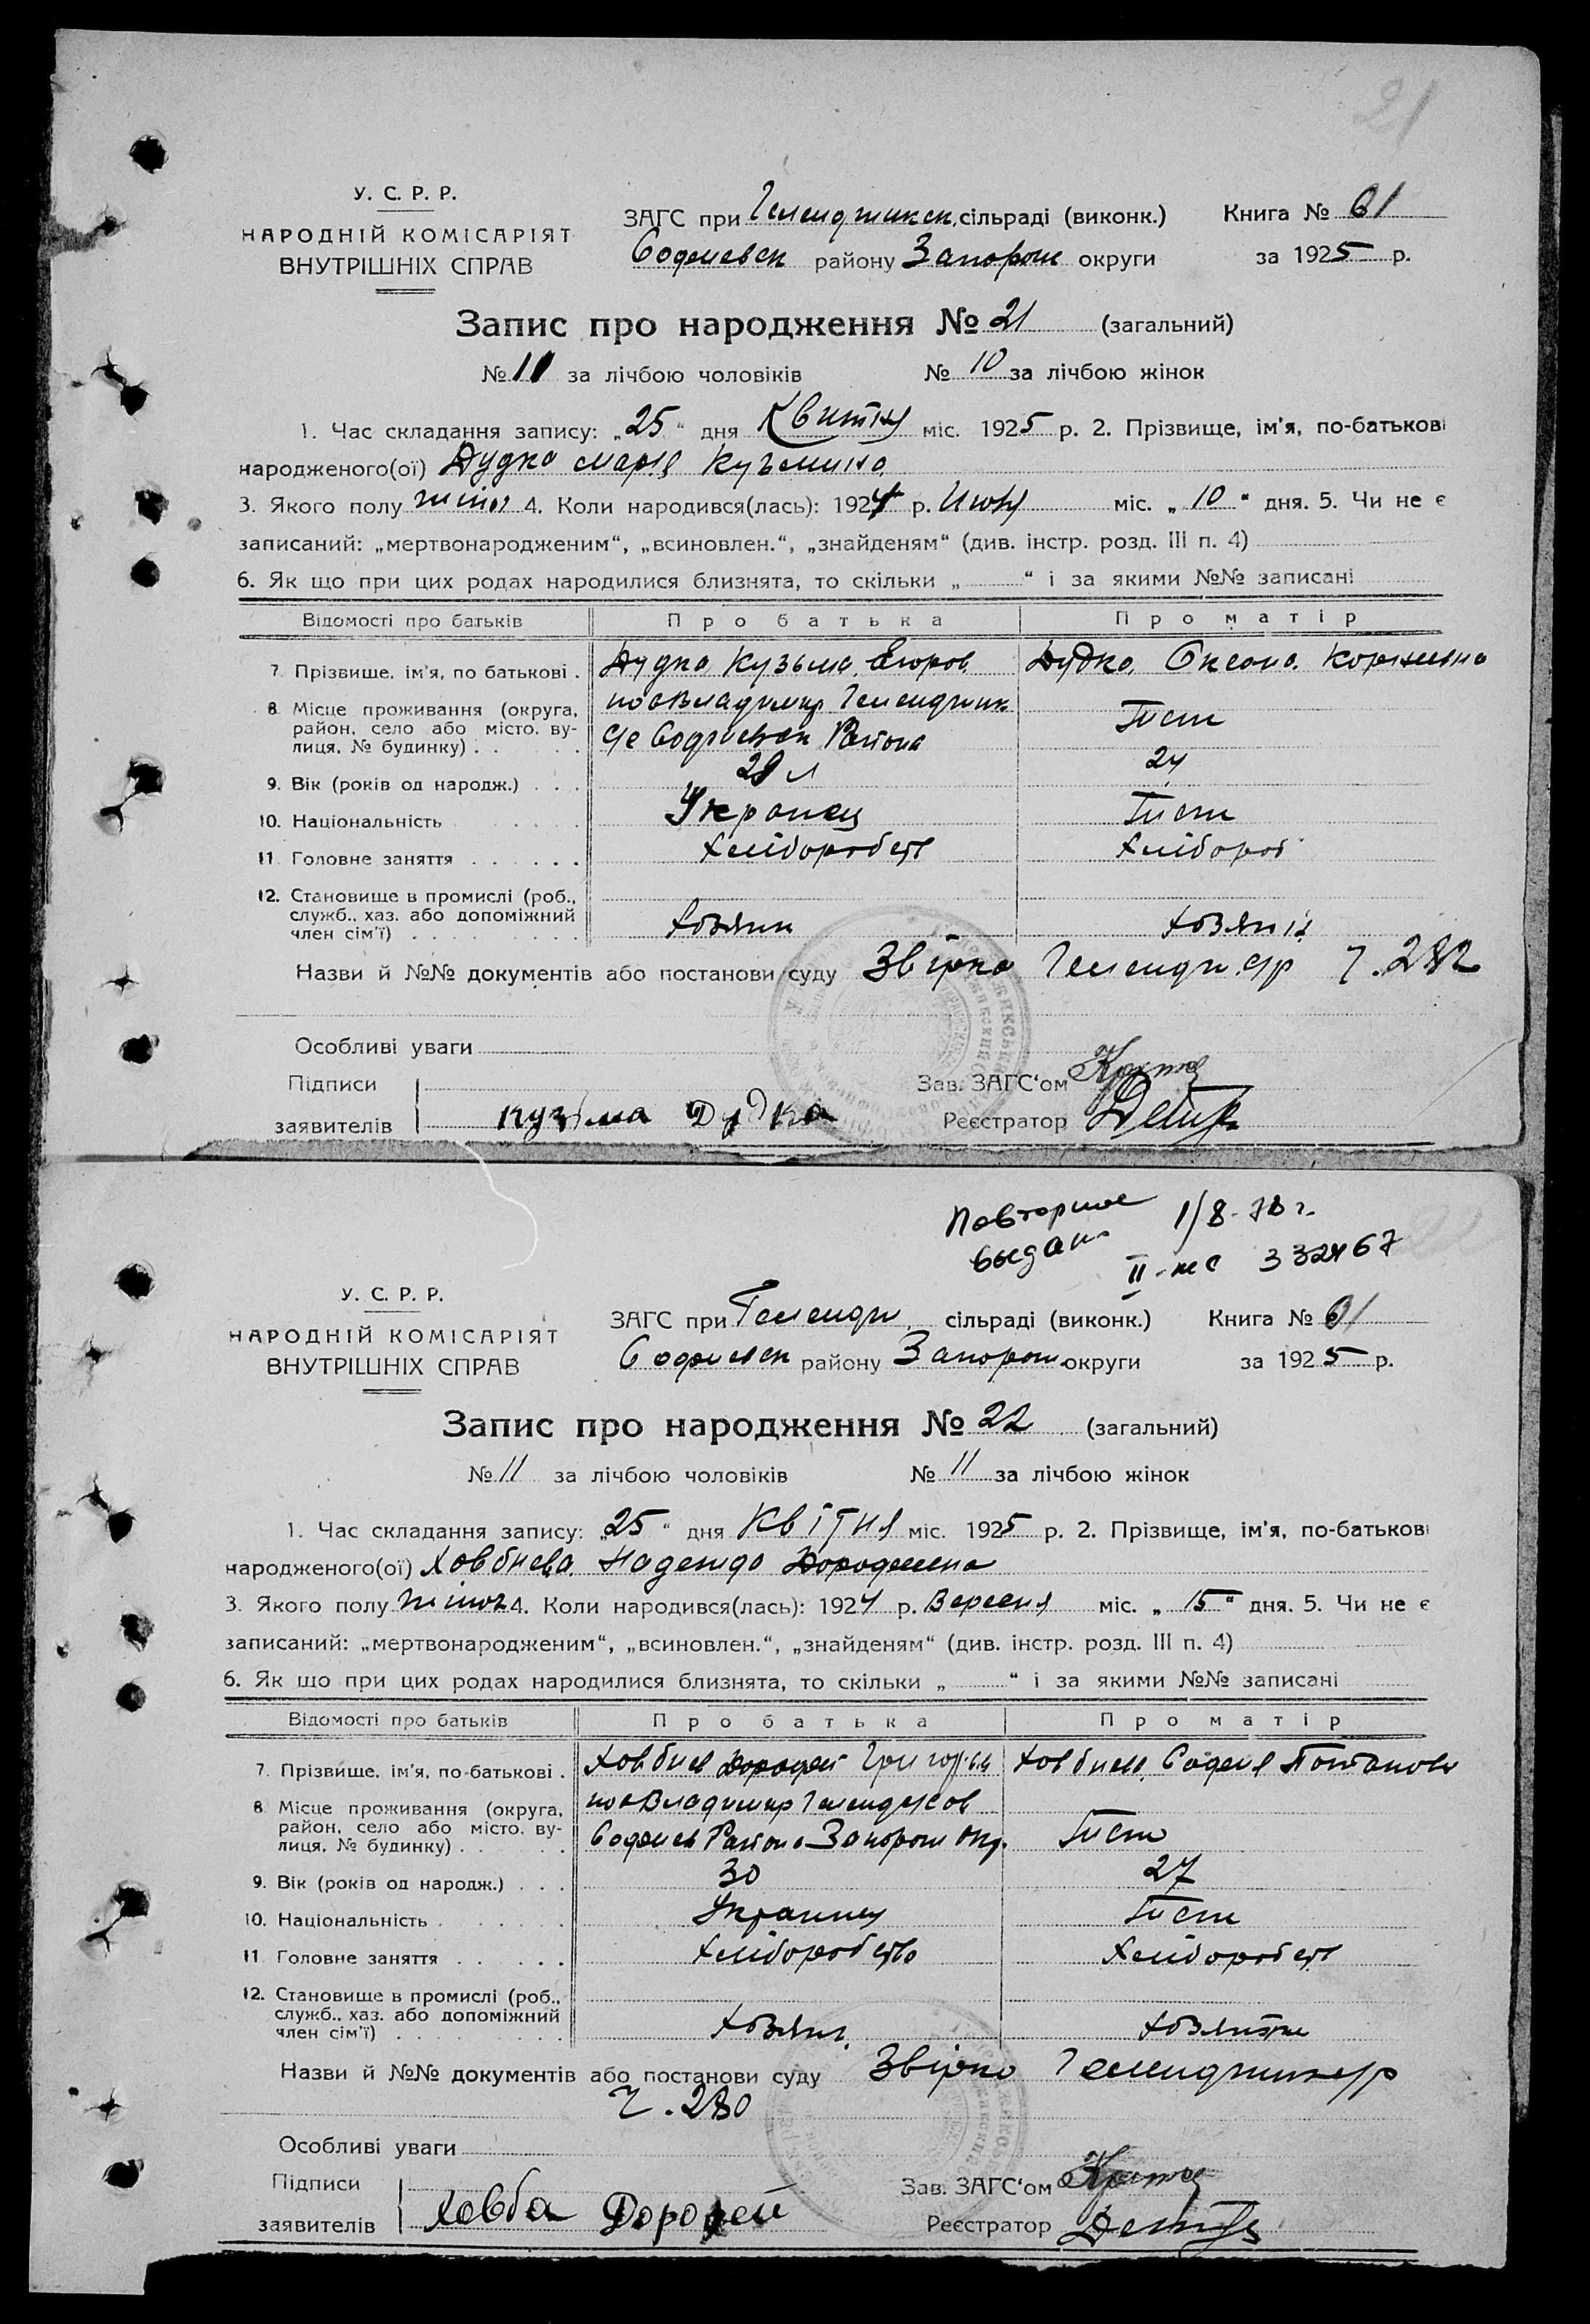 21
У. С. Р. Р.
НАРОДНІЙ КОМІСАРІЯТ
ВНУТРІШНІХ СПРАВ
ЗАГС при сільраді (виконк.) Книга № 61
району Запорож округи за 1925 р.
Запис про народження № 21 (загальний)
№ 11 за лічбою чоловіків № 10 за лічбою жінок
1. Час складання запису: „25“ дня Квитня міс. 1925 р. 2. Прізвище, ім'я, по-батькові
народженого(ої) Дудка Мария Кузьмина
3. Якого полу жіноч 4. Коли народився(лась): 1924 р. Июня міс. „10“ дня. 5. Чи не є
записаний: „мертвонародженим“, „всиновлен.“, „знайденям“ (див. інстр. розд. III п. 4)
6. Як що при цих родах народилися близнята, то скільки „ “ і за якими №№ записані
Відомості про батьків Про батька Про матір
7. Прізвище, ім'я, по батькові . Дудка Кузьма Егоров Дудка Оксана
8. Місце проживання (округа, пос Владимир
район, село або місто, ву- Района Тиеж
лиця, № будинку) . . .
9. Вік (років од народж.) . . . 28 л 24
10. Національність Украинец Тиеж
11. Головне заняття . . . . . . Хліборобств Хлібороб
12. Становище в промислі (роб.,
служб., хаз. або допоміжний
член сім'ї) . . . . . . . . . Хозяин Хозяин
Назви й №№ документів або постанови суду Звірка Ч. 282
Особливі уваги
Підписи Зав. ЗАГС‘ом
заявителів Кузьма Дудка Реєстратор
Повторное 1/8-78 г.
выдан II-жс 332467
У. С. Р. Р.
НАРОДНІЙ КОМІСАРІЯТ
ВНУТРІШНІХ СПРАВ
ЗАГС при Гелендж сільраді (виконк.) Книга № 61
району Запорож округи за 1925 р.
Запис про народження № 22 (загальний)
№ 11 за лічбою чоловіків № 11 за лічбою жінок
1. Час складання запису: „25“ дня Квітня міс. 1925 р. 2. Прізвище, ім'я, по-батькові
народженого(ої) Ховбнева Надежда Дорофеевна
3. Якого полу жіноч 4. Коли народився(лась): 1924 р. Вересня міс. „15“ дня. 5. Чи не є
записаний: „мертвонародженим“, „всиновлен.“, „знайденям“ (див. інстр. розд. III п. 4)
6. Як що при цих родах народилися близнята, то скільки „ “ і за якими №№ записані
Відомості про батьків Про батька Про матір
7. Прізвище, ім'я, по-батькові . Дорофей София
8. Місце проживання (округа, пос Владимир
район, село або місто, ву- Района Запорож окр. Тиеж
лиця, № будинку) . . .
9. Вік (років од народж.) . . . 30 27
10. Національність . Украинец Тиеж
11. Головне заняття . . . . . Хліборобство Хліборобств
12. Становище в промислі (роб.,
служб., хаз. або допоміжний
член сім'ї) . . . . . . . . . Хозяин
Назви й №№ документів або постанови суду Звірка
Ч. 280
Особливі уваги
Підписи Зав. ЗАГС‘ом
заявителів Ховба Дорофей Реєстратор